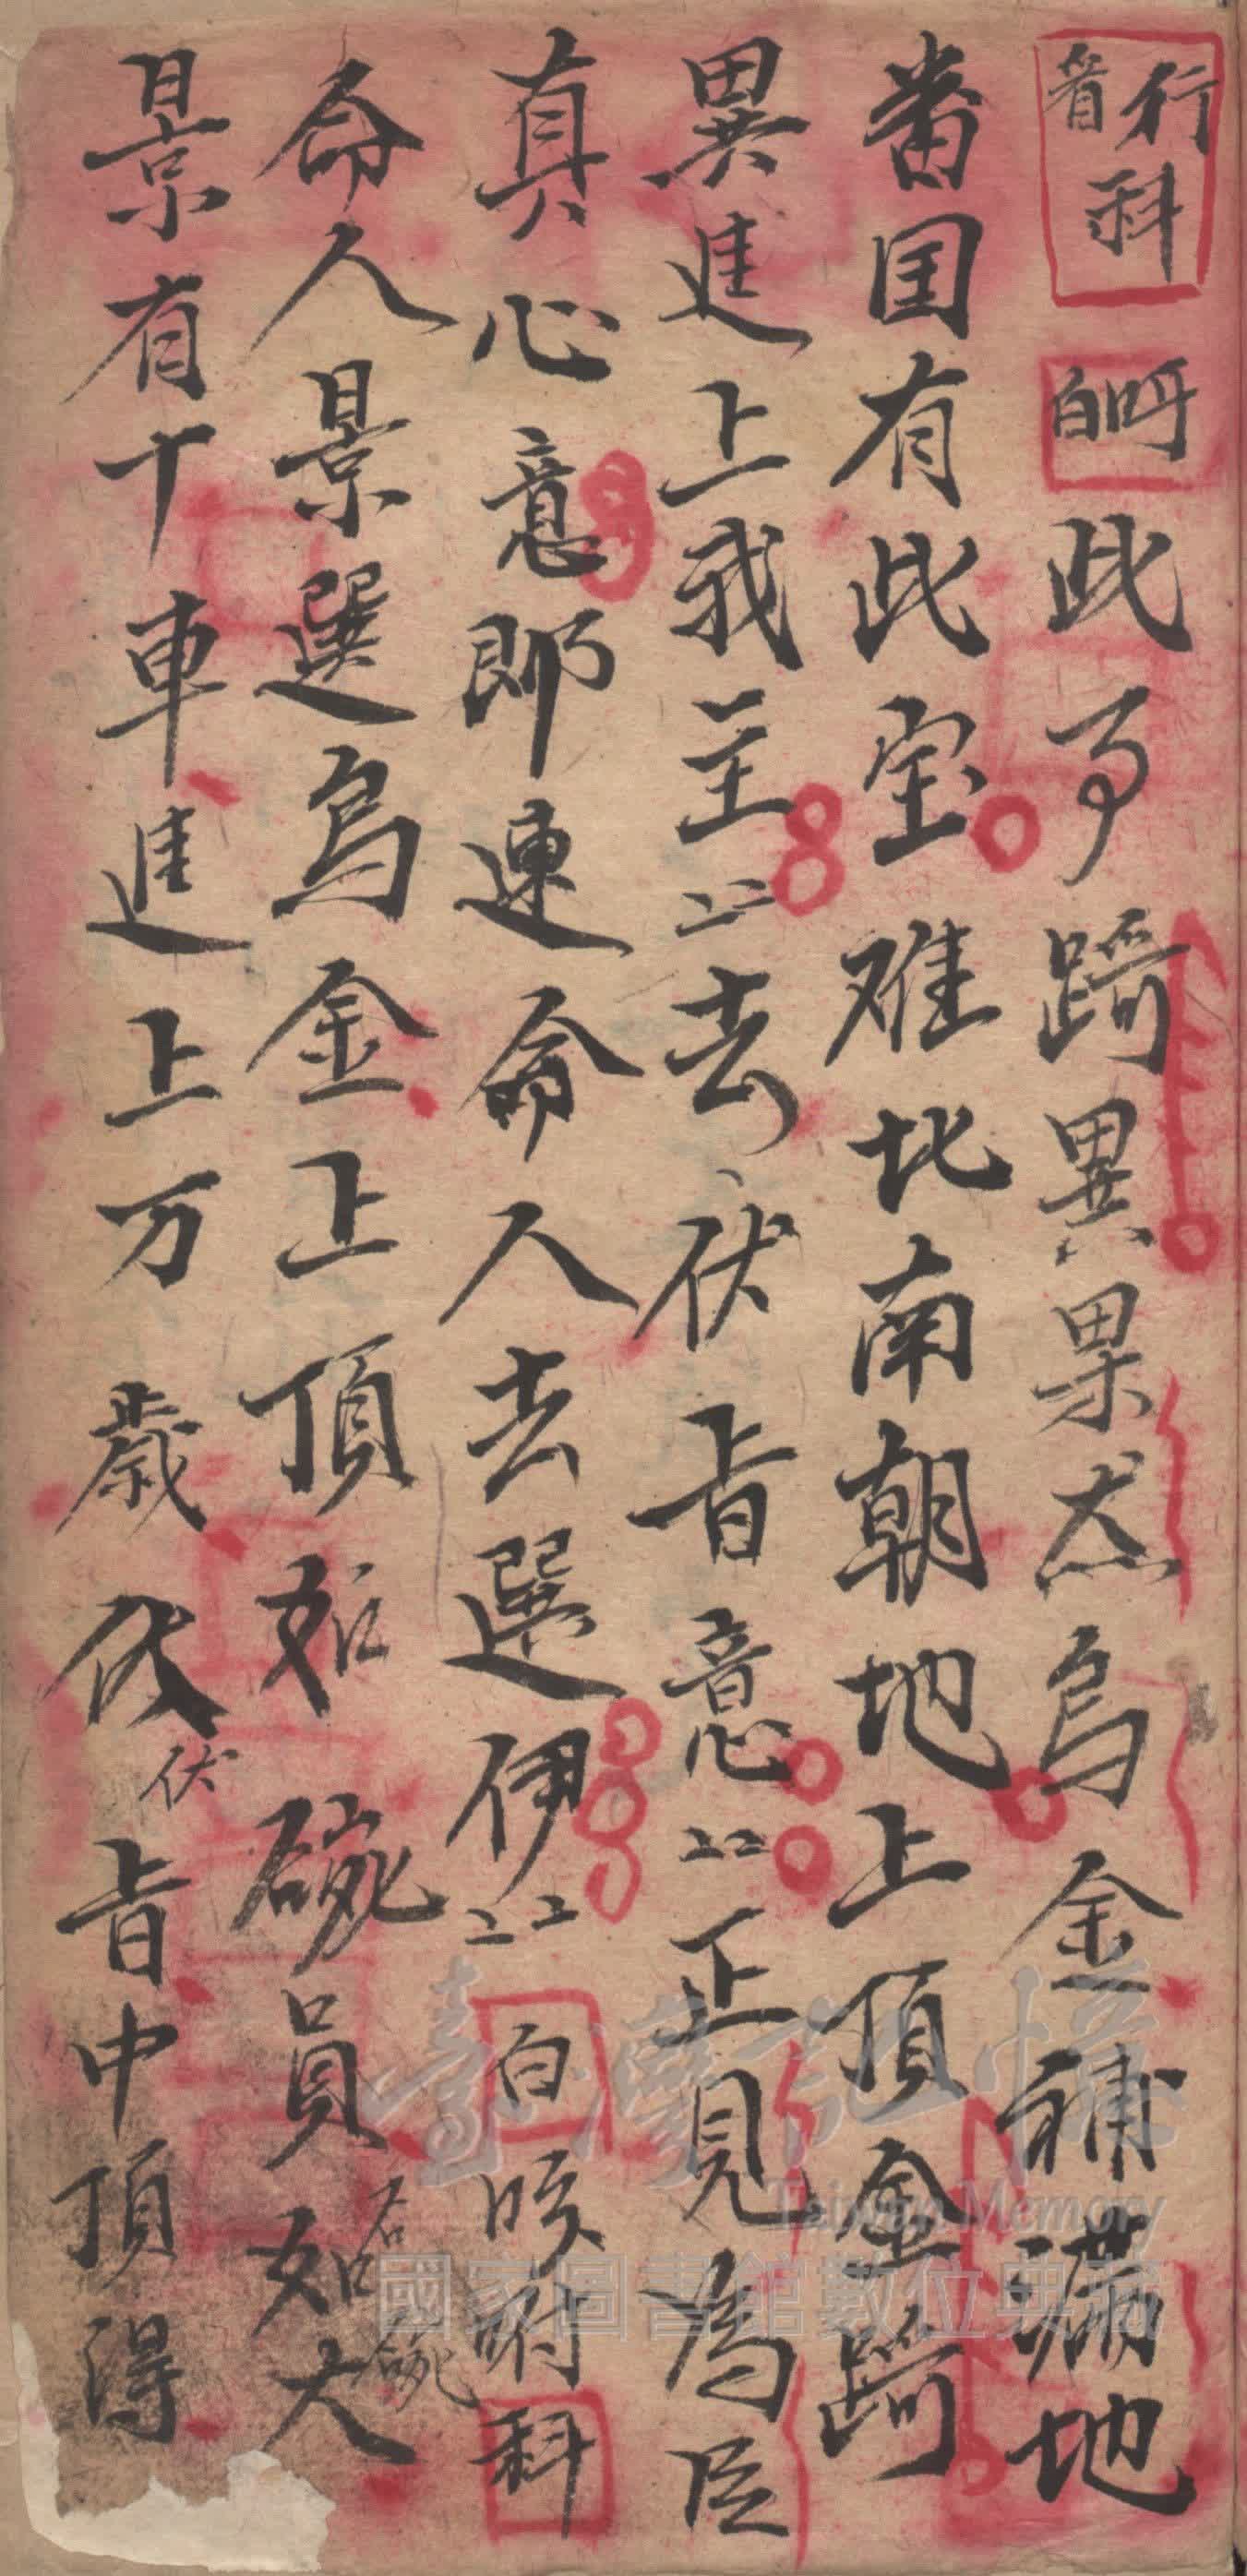 行科
白吘此事蹊異果然烏金補滿地
番国有此宝难比南朝地上頂金蹊
異進上我主〻去伏旨意〻正見為臣
真心意即速命人去選伊〻白咳咐科
命人景選烏金上頂如碗員如大
石碗
景有十車進上万歲伏旨中頂得
伏
臺灣記憶
Taiwan Memory
國家圖書館數位典藏